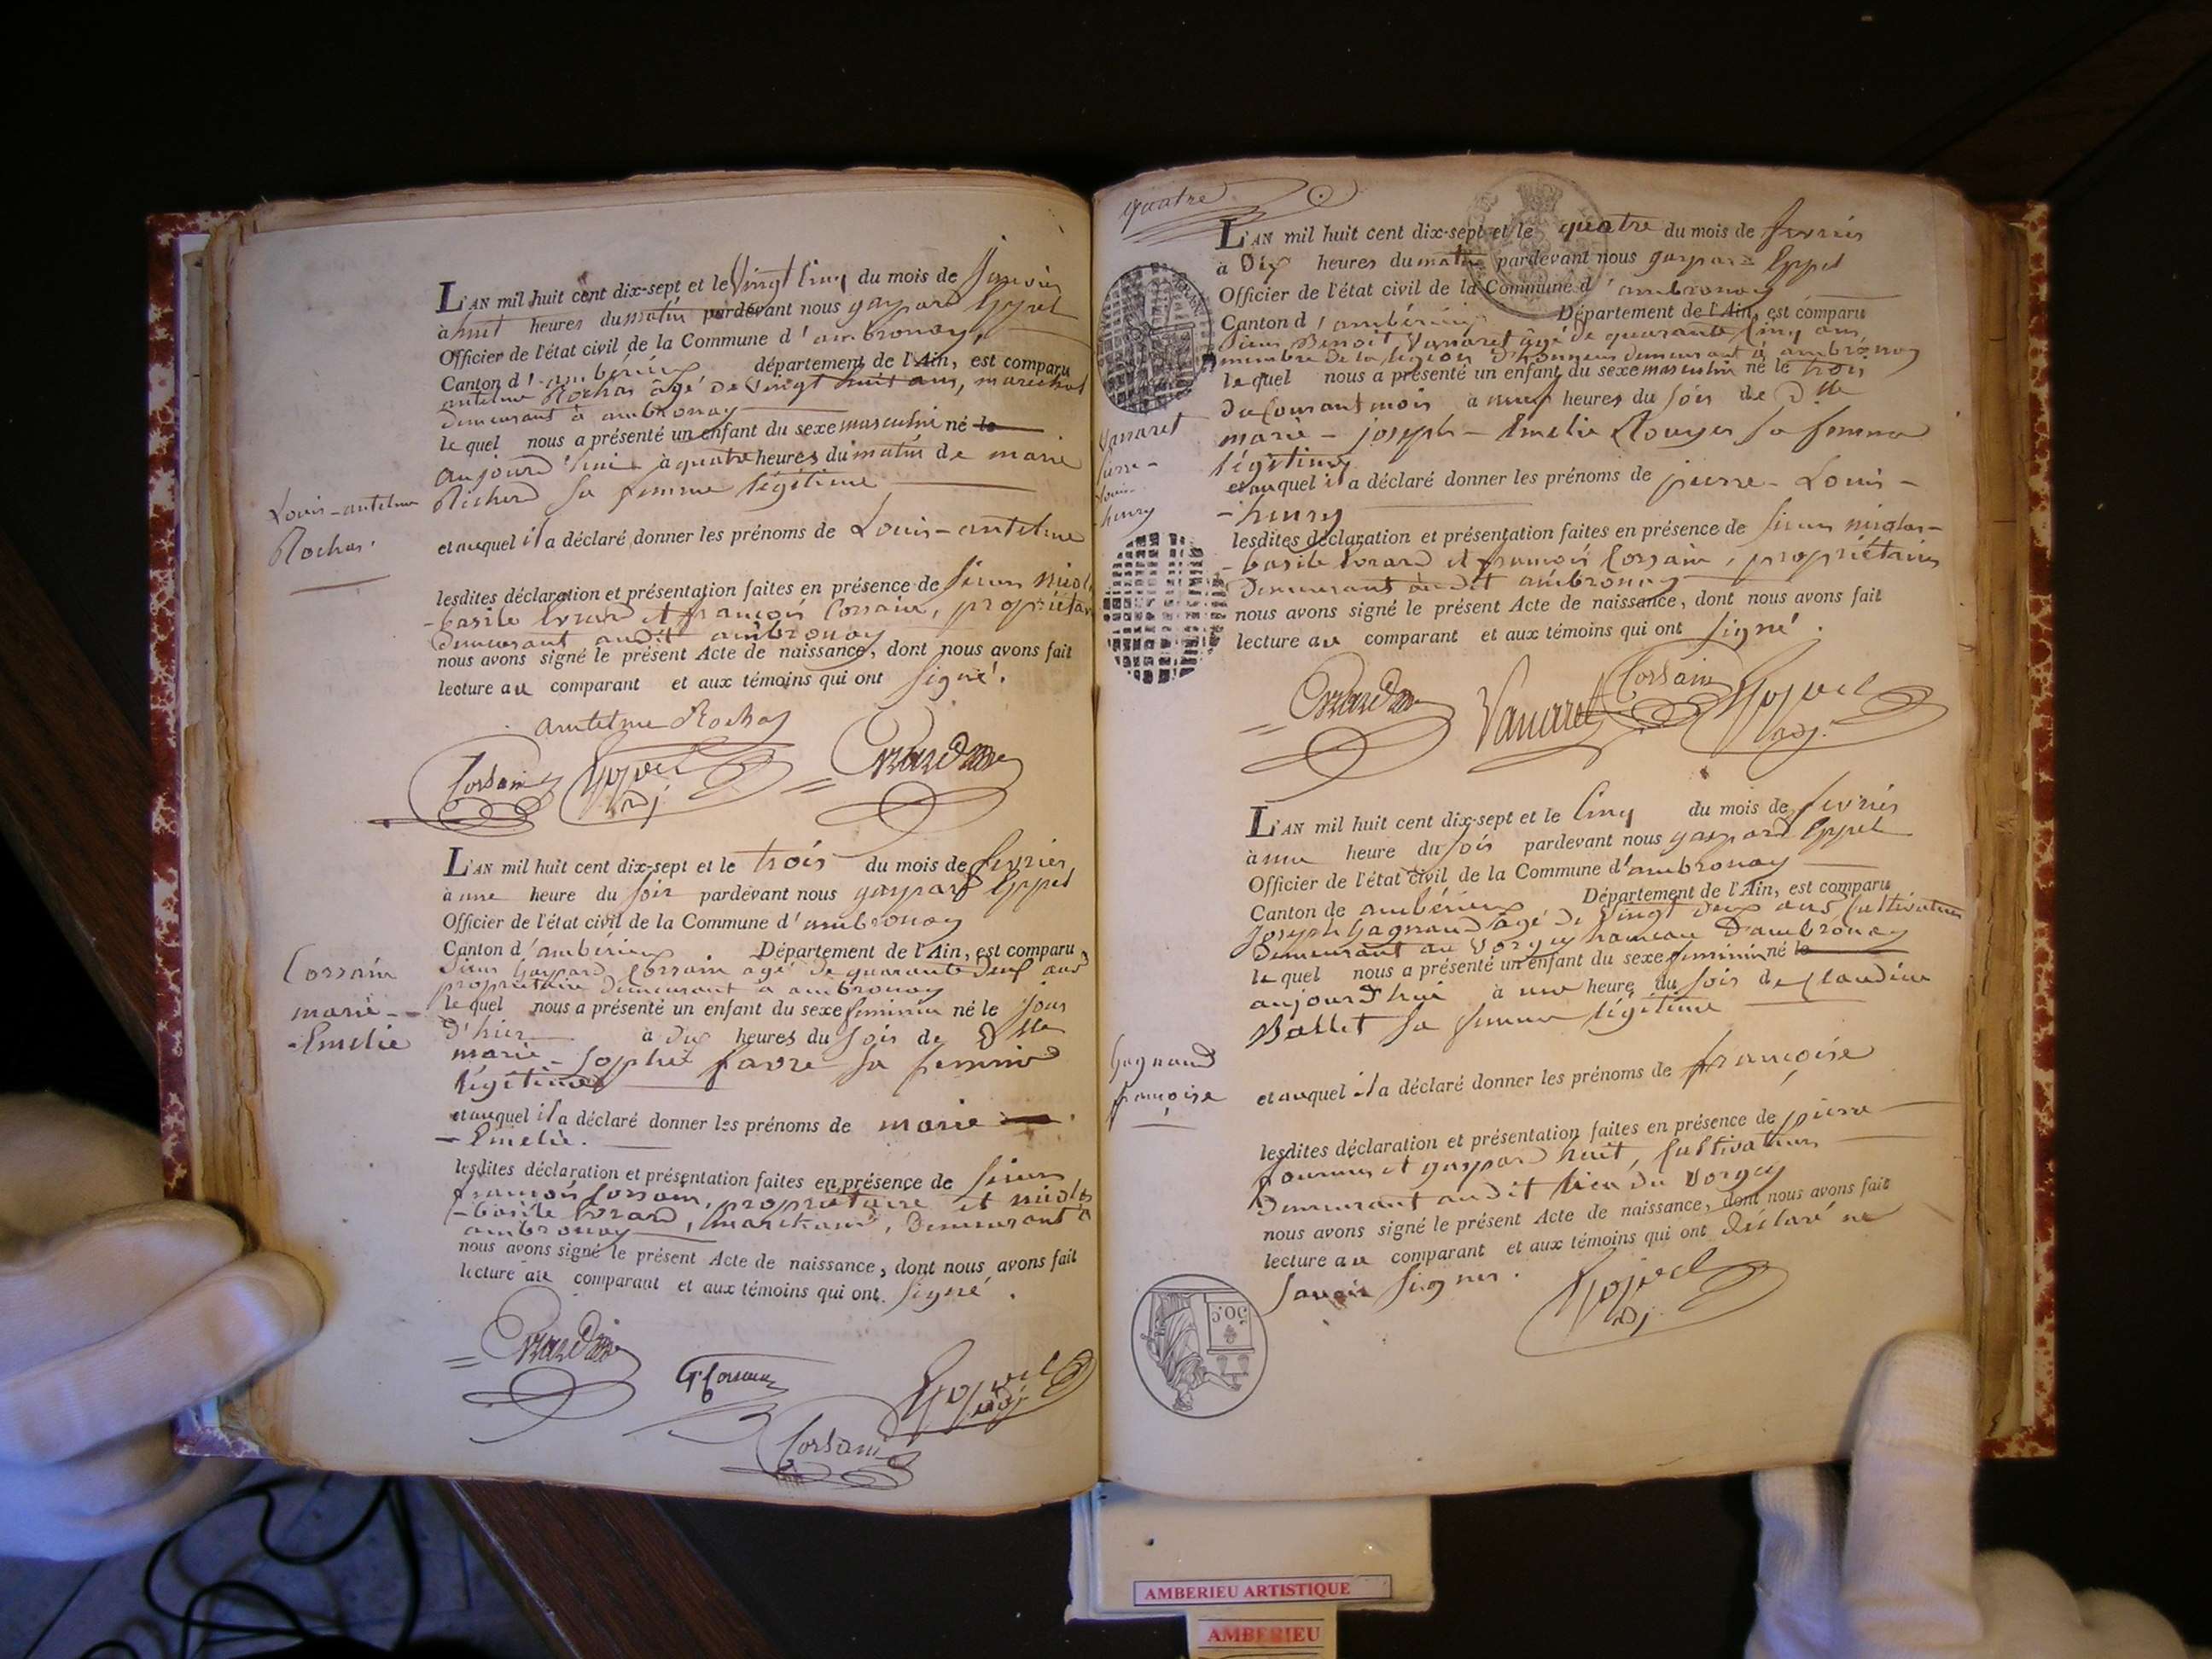 L'AN mil huit cent dix-sept et le Vingt Cinq du mois de janvier
à huit heures du matin pardevant nous gaspard Eppel
Officier de l'état civil de la Commune d'ambronay,
Canton d'ambérieux département de l'Ain, est comparu
antelme Rochas âgé de vingt huit ans, marechal
demeurant à ambronay
lequel nous a présenté un enfant du sexe masculin né le
aujourd'hui à quatre heures du matin de marie
Richerd sa femme légitime
Louis-antelme
Rochas.
et auquel il a déclaré donner les prénoms de Louis-antelme
lesdites déclaration et présentation faites en présence de sieurs nicol
-basile Evrard et françois Corsain, propriétair
demeurant audit ambronay
nous avons signé le présent Acte de naissance, dont nous avons fait
lecture au comparant et aux témoins qui ont signé.
antelme Rochas
Corsain Eppel Evrard
adj.
L'AN mil huit cent dix-sept et le trois du mois de fevrier
à une heure du soir pardevant nous gaspard Eppel
Officier de l'état civil de la Commune d'ambronay
Canton d'ambérieux Département de l'Ain, est comparu
Sieur Gaspard Corsain agé de quarante deux ans
propriétaire demeurant à ambronay
lequel nous a présenté un enfant du sexe feminin né le jour
d'hier à dix heures du soir de Dlle
marie-sophie favre sa femme
légitime
Corsain
marie-
-Emelie
et auquel il a déclaré donner les prénoms de marie
-Emelie.
lesdites déclaration et présentation faites en présence de sieurs
françois Corsain, propriétaire et nicolas
-basile Evrard, marchand, demeurant à
ambronay
nous avons signé le présent Acte de naissance, dont nous avons fait
lecture au comparant et aux témoins qui ont signé.
Evrard G. Corsain Eppel
adj
Corsain
quatre
L'AN mil huit cent dix-sept et le quatre du mois de fevrier
à Dix heures du matin pardevant nous gaspard Eppel
Officier de l'état civil de la Commune d'ambronay
Canton d'ambérieux Département de l'Ain, est comparu
Sieur Benoit Vanaret âgé de quarante cinq ans
membre de la légion d'honneur demeurant à ambronay
lequel nous a présenté un enfant du sexe masculin né le trois
du Courant mois à neuf heures du soir de Dlle
marie-joseph-Emelie Rouyer sa femme
légitime
Vanaret
pierre-
-Louis-
-henry
et auquel il a déclaré donner les prénoms de pierre-Louis-
-henry
lesdites déclaration et présentation faites en présence de sieurs nicolas-
-basile Evrard et françois Corsain, propriétaires
demeurant audit ambronay
nous avons signé le présent Acte de naissance, dont nous avons fait
lecture au comparant et aux témoins qui ont signé.
Evrard Vanaret Corsain Eppel
adj.
L'AN mil huit cent dix-sept et le Cinq du mois de fevrier
à une heure du soir pardevant nous gaspard Eppel
Officier de l'état civil de la Commune d'ambronay
Canton de ambérieux Département de l'Ain, est comparu
Joseph Gagnaud âgé de vingt deux ans Cultivateur
demeurant au Vorgey hameau d'ambronay
lequel nous a présenté un enfant du sexe feminin né le
aujourd'hui à une heure du soir de Claudine
Ballet sa femme légitime
Gagnaud
françoise
et auquel il a déclaré donner les prénoms de françoise
lesdites déclaration et présentation faites en présence de pierre
fournier et gaspard huit, Cultivateurs
demeurant audit lieu du Vorgey
nous avons signé le présent Acte de naissance, dont nous avons fait
lecture au comparant et aux témoins qui ont déclaré ne
savoir signer.
Eppel
adj
50.C
AMBERIEU ARTISTIQUE
AMBERIEU